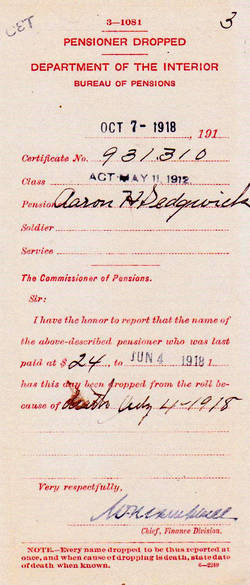 CET
3
3—1081
PENSIONER DROPPED
DEPARTMENT OF THE INTERIOR
BUREAU OF PENSIONS
OCT 7- 1918, 191
Certificate No. 931.310
Class ACT MAY 11, 1912
Pension Aaron H Sedgwick
Soldier
Service
The Commissioner of Pensions.
Sir:
I have the honor to report that the name of
the above-described pensioner who was last
paid at $24, to JUN 4 1918 1
has this day been dropped from the roll be-
cause of death July 4-1918
Very respectfully,
Chief, Finance Division.
NOTE.—Every name dropped to be thus reported at
once, and when cause of dropping is death, state date
of death when known. 6—2249